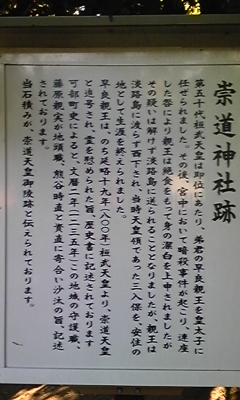 崇道神社跡
第五十代桓武天皇は即位にあたり、弟君の早良親王を皇太子に
任せられました。その後、宮中において暗殺事件が起こり、連座
した咎により親王は絶食をもって身の潔白を上申されましたが
その疑いは解けず淡路島に送られることとなりましたが、親王は
淡路島に渡らず西下され、当時天皇領であった三入保を、安住の
地として生涯を終えられました。
早良親王は、のち延暦十九年(八〇〇年)桓武天皇より、崇道天皇
と追号され、霊を慰められた旨、歴史書に記述されております
可部町史によると、文暦二年(一二三五年)この地域の守護職、
藤原親実が地頭職、熊谷時直と資直に寄合い沙汰の旨、記述
されております。
当石積みが、崇道天皇御陵跡と伝えられております。